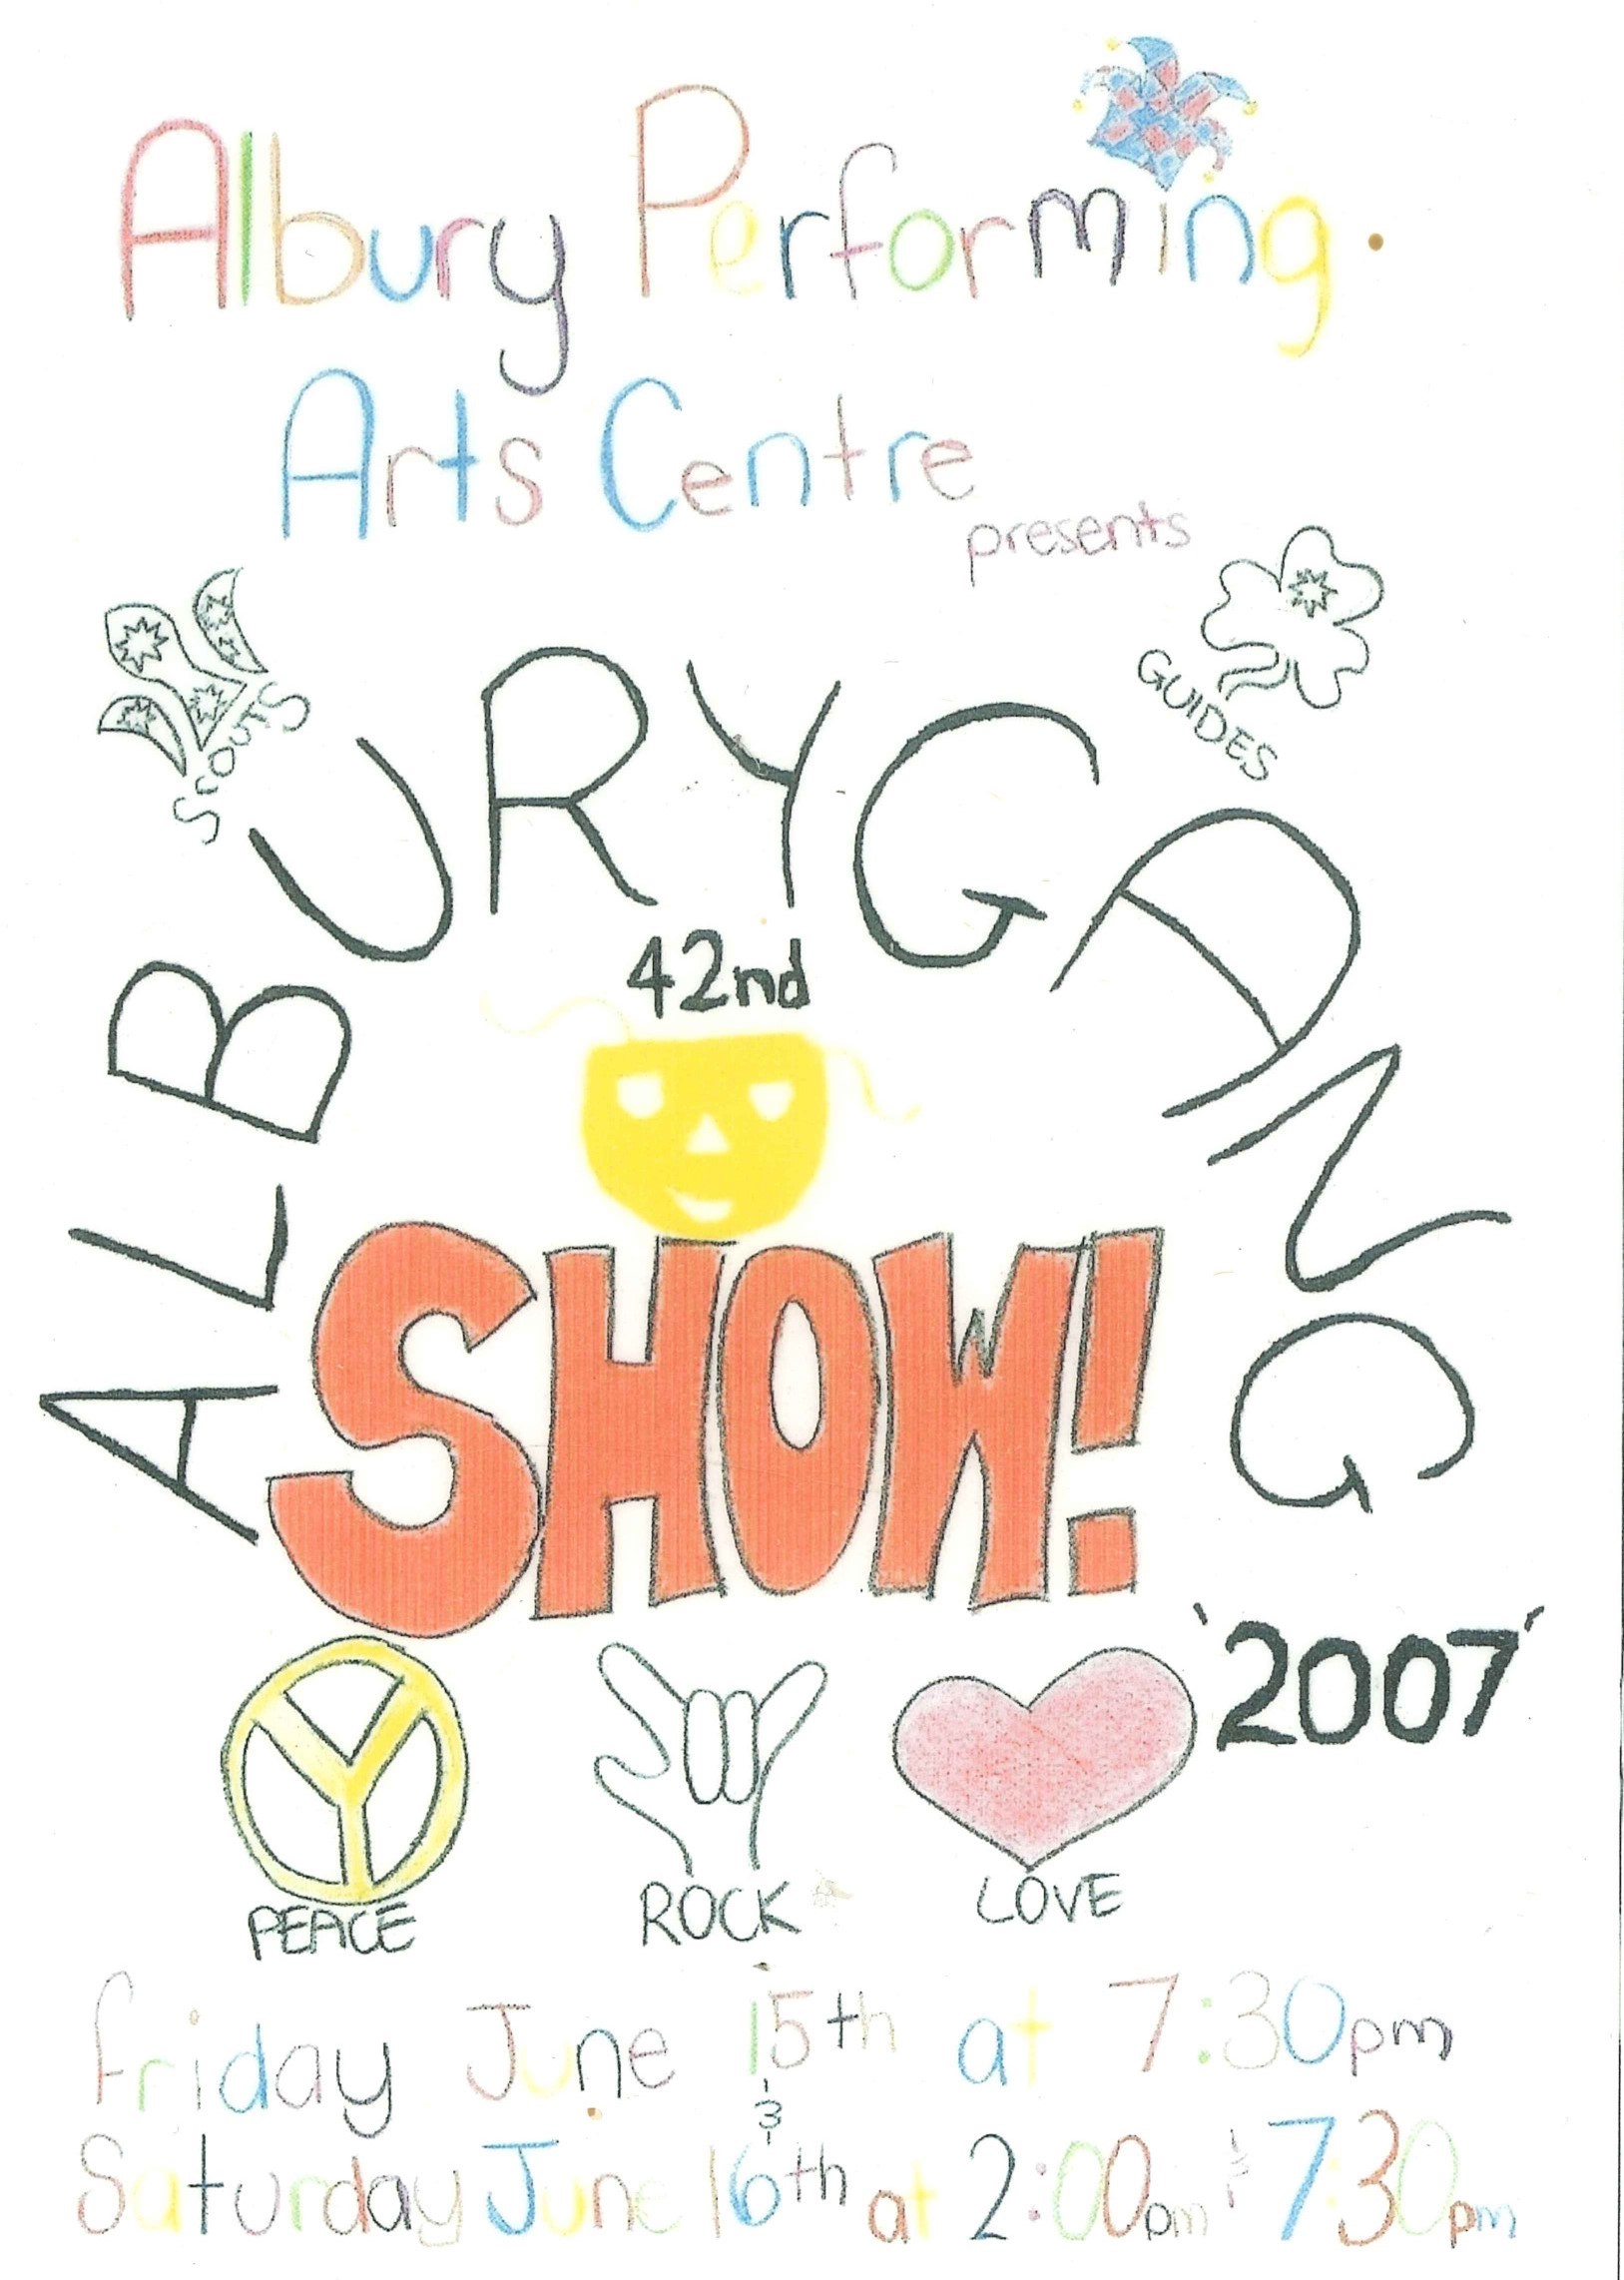 Albury Performing
Arts Centre
presents
SCOUTS
GUIDES
ALBURY GANG
42nd
SHOW!
'2007'
PEACE
ROCK
LOVE
friday June 15th at 7:30pm
&
Saturday June 16th at 2:00pm & 7:30pm